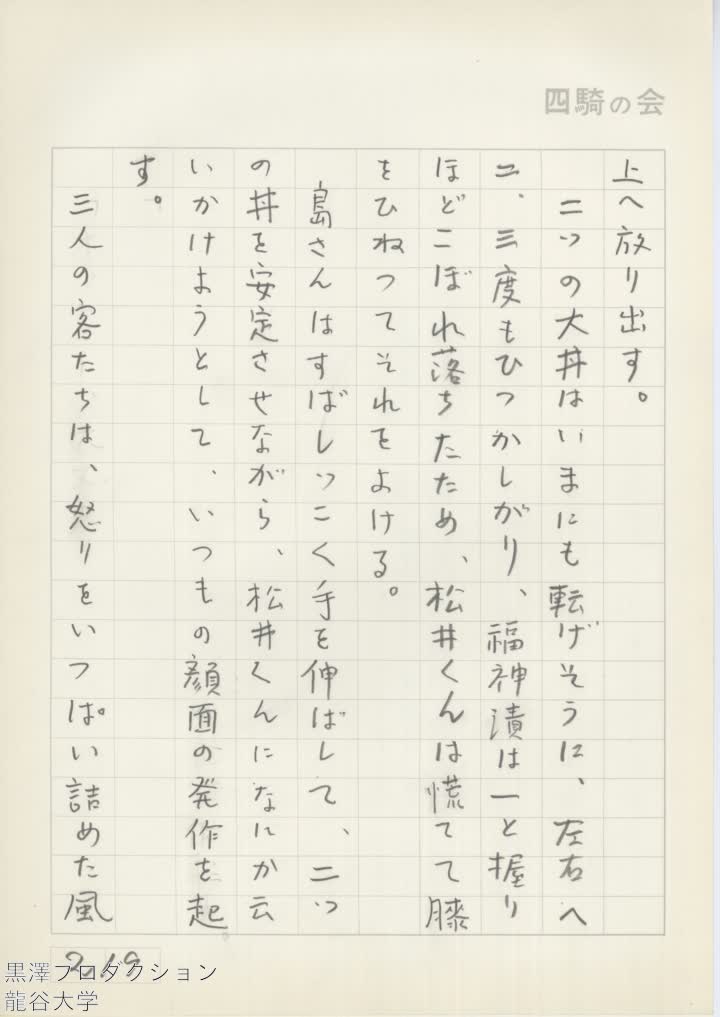 四騎の会
上へ放り出す。
二つの大丼はいまにも転げそうに、左右へ
二、三度もひつかしがり、福神漬は一と握り
ほどこぼれ落ちたため、松井くんは慌てて膝
をひねってそれをよける。
島さんはすばしっこく手を伸ばして、二つ
の丼を安定させながら、松井くんになにか云
いかけようとして、いつもの顔面の発作を起
す。
三人の客たちは、怒りをいっぱい詰めた風
219
黒澤プロダクション
龍谷大学